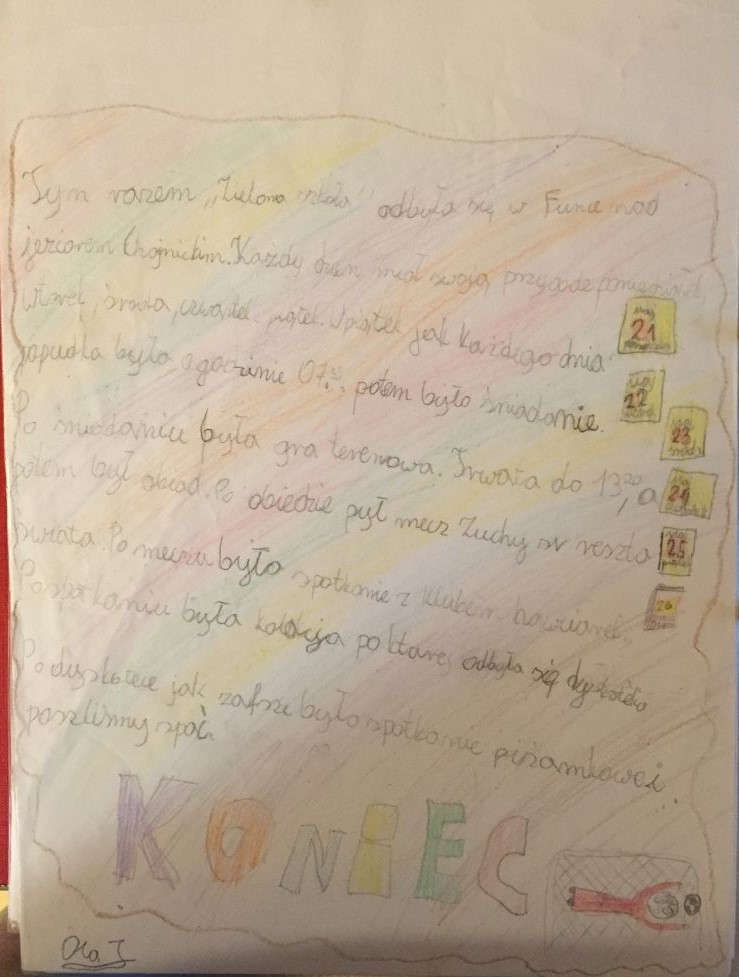 Tym razem „Zielona szkoła" odbyła się w Funce nad
jeziorem Chojnickim. Każdy dzień miał swoją przygodę poniedziałek,
wtorek, środa, czwartek, piątek. W piątek jak każdego dnia
popudka była o godzinie 07.30. potem było śniadanie.
Po śniadaniu była gra terenowa. Trwała do 13.20, a
potem był obiad. Po obiedzie pył mecz Zuchy sv reszta
swiata. Po meczu było spotkanie z klubem
Po spotkaniu była kolacja po której odbyła się dyskoteka
Po dyskotece jak zafsze było spotkanie piżamkowe i
poszliśmy spać.
21
22
23 środa
24
25 piątek
26
KONIEC
Ola J